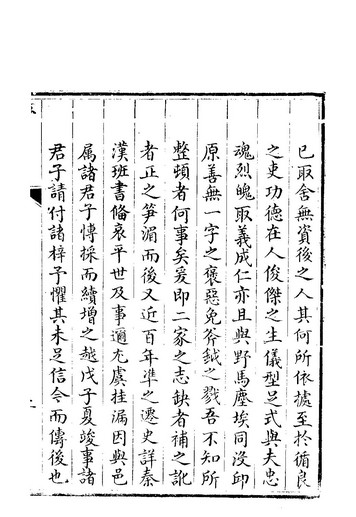 已取舍無資後之人其何所依據至於循良
之吏功德在人俊傑之生儀型足式與夫忠
魂烈魄取義成仁亦且與野馬塵埃同沒印
原善無一字之褒惡免斧鉞之戮吾不知所
整頓者何事矣爰即二家之志缺者補之訛
者正之笋湄而後又近百年準之遷史詳秦
漢班書俻哀平世及事邇尤虞挂漏因與邑
属諸君子慱採而續增之越戊子夏竣事諸
君子請付諸梓予懼其未足信今而儔後也